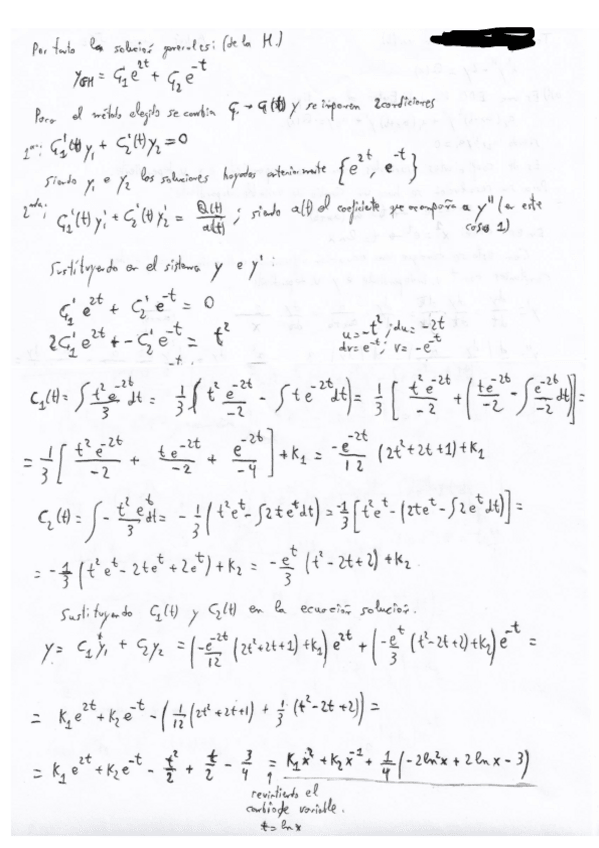 Por tanto las soluciones generales: (de la H.)
y_GH = C₁e^{2t} + C₂e^{-t}
Para el método elegido se cambia C₁ → C₁(t) y se imponen 2 condiciones
1ª: C₁'(t)y₁ + C₂'(t)y₂ = 0
siendo y₁ e y₂ las soluciones halladas anteriormente {e^{2t}, e^{-t}}
2ª: C₁'(t)y₁' + C₂'(t)y₂' = Q(t)/a(t) ; siendo a(t) el coeficiente que acompaña a y'' (en este
caso 1)
Sustituyendo en el sistema y e y':
C₁'e^{2t} + C₂'e^{-t} = 0
2C₁'e^{2t} + -C₂'e^{-t} = t²
u = -t² ; du = -2t
dv = e^{-t} ; v = -e^{-t}
C₁(t) = ∫ t²e^{-2t}/3 dt = 1/3 ∫( t²e^{-2t}/-2 - ∫te^{-2t}dt) = 1/3 [ t²e^{-2t}/-2 + (te^{-2t}/-2 - ∫e^{-2t}/-2 dt)] =
= 1/3 [ t²e^{-2t}/-2 + te^{-2t}/-2 + e^{-2t}/-4 ] + K₁ = -e^{-2t}/12 (2t²+2t+1) + K₁
C₂(t) = ∫ - t²e^t/3 dt = -1/3 (t²e^t - ∫2te^t dt) = -1/3 [t²e^t - (2te^t - ∫2e^t dt)] =
= -1/3 (t²e^t - 2te^t + 2e^t) + K₂ = -e^t/3 (t² - 2t + 2) + K₂
Sustituyendo C₁(t) y C₂(t) en la ecuación solución.
y = C₁y₁ + C₂y₂ = (-e^{-2t}/12 (2t²+2t+1) + K₁) e^{2t} + (-e^t/3 (t²-2t+2) + K₂) e^{-t} =
= K₁e^{2t} + K₂e^{-t} - (1/12 (2t²+2t+1) + 1/3 (t²-2t+2)) =
= K₁e^{2t} + K₂e^{-t} - t²/2 + t/2 - 3/4 = K₁x² + K₂x^{-1} + 1/4 (-2ln²x + 2lnx - 3)
revirtiendo el
cambio de variable.
t = ln x